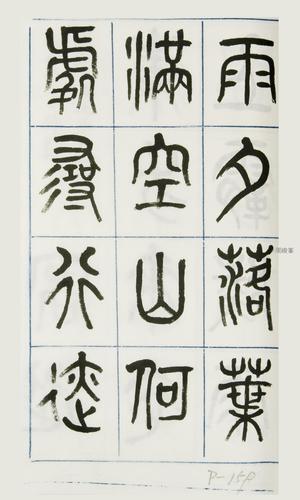 雨夕落葉
滿空山何
處尋行迹